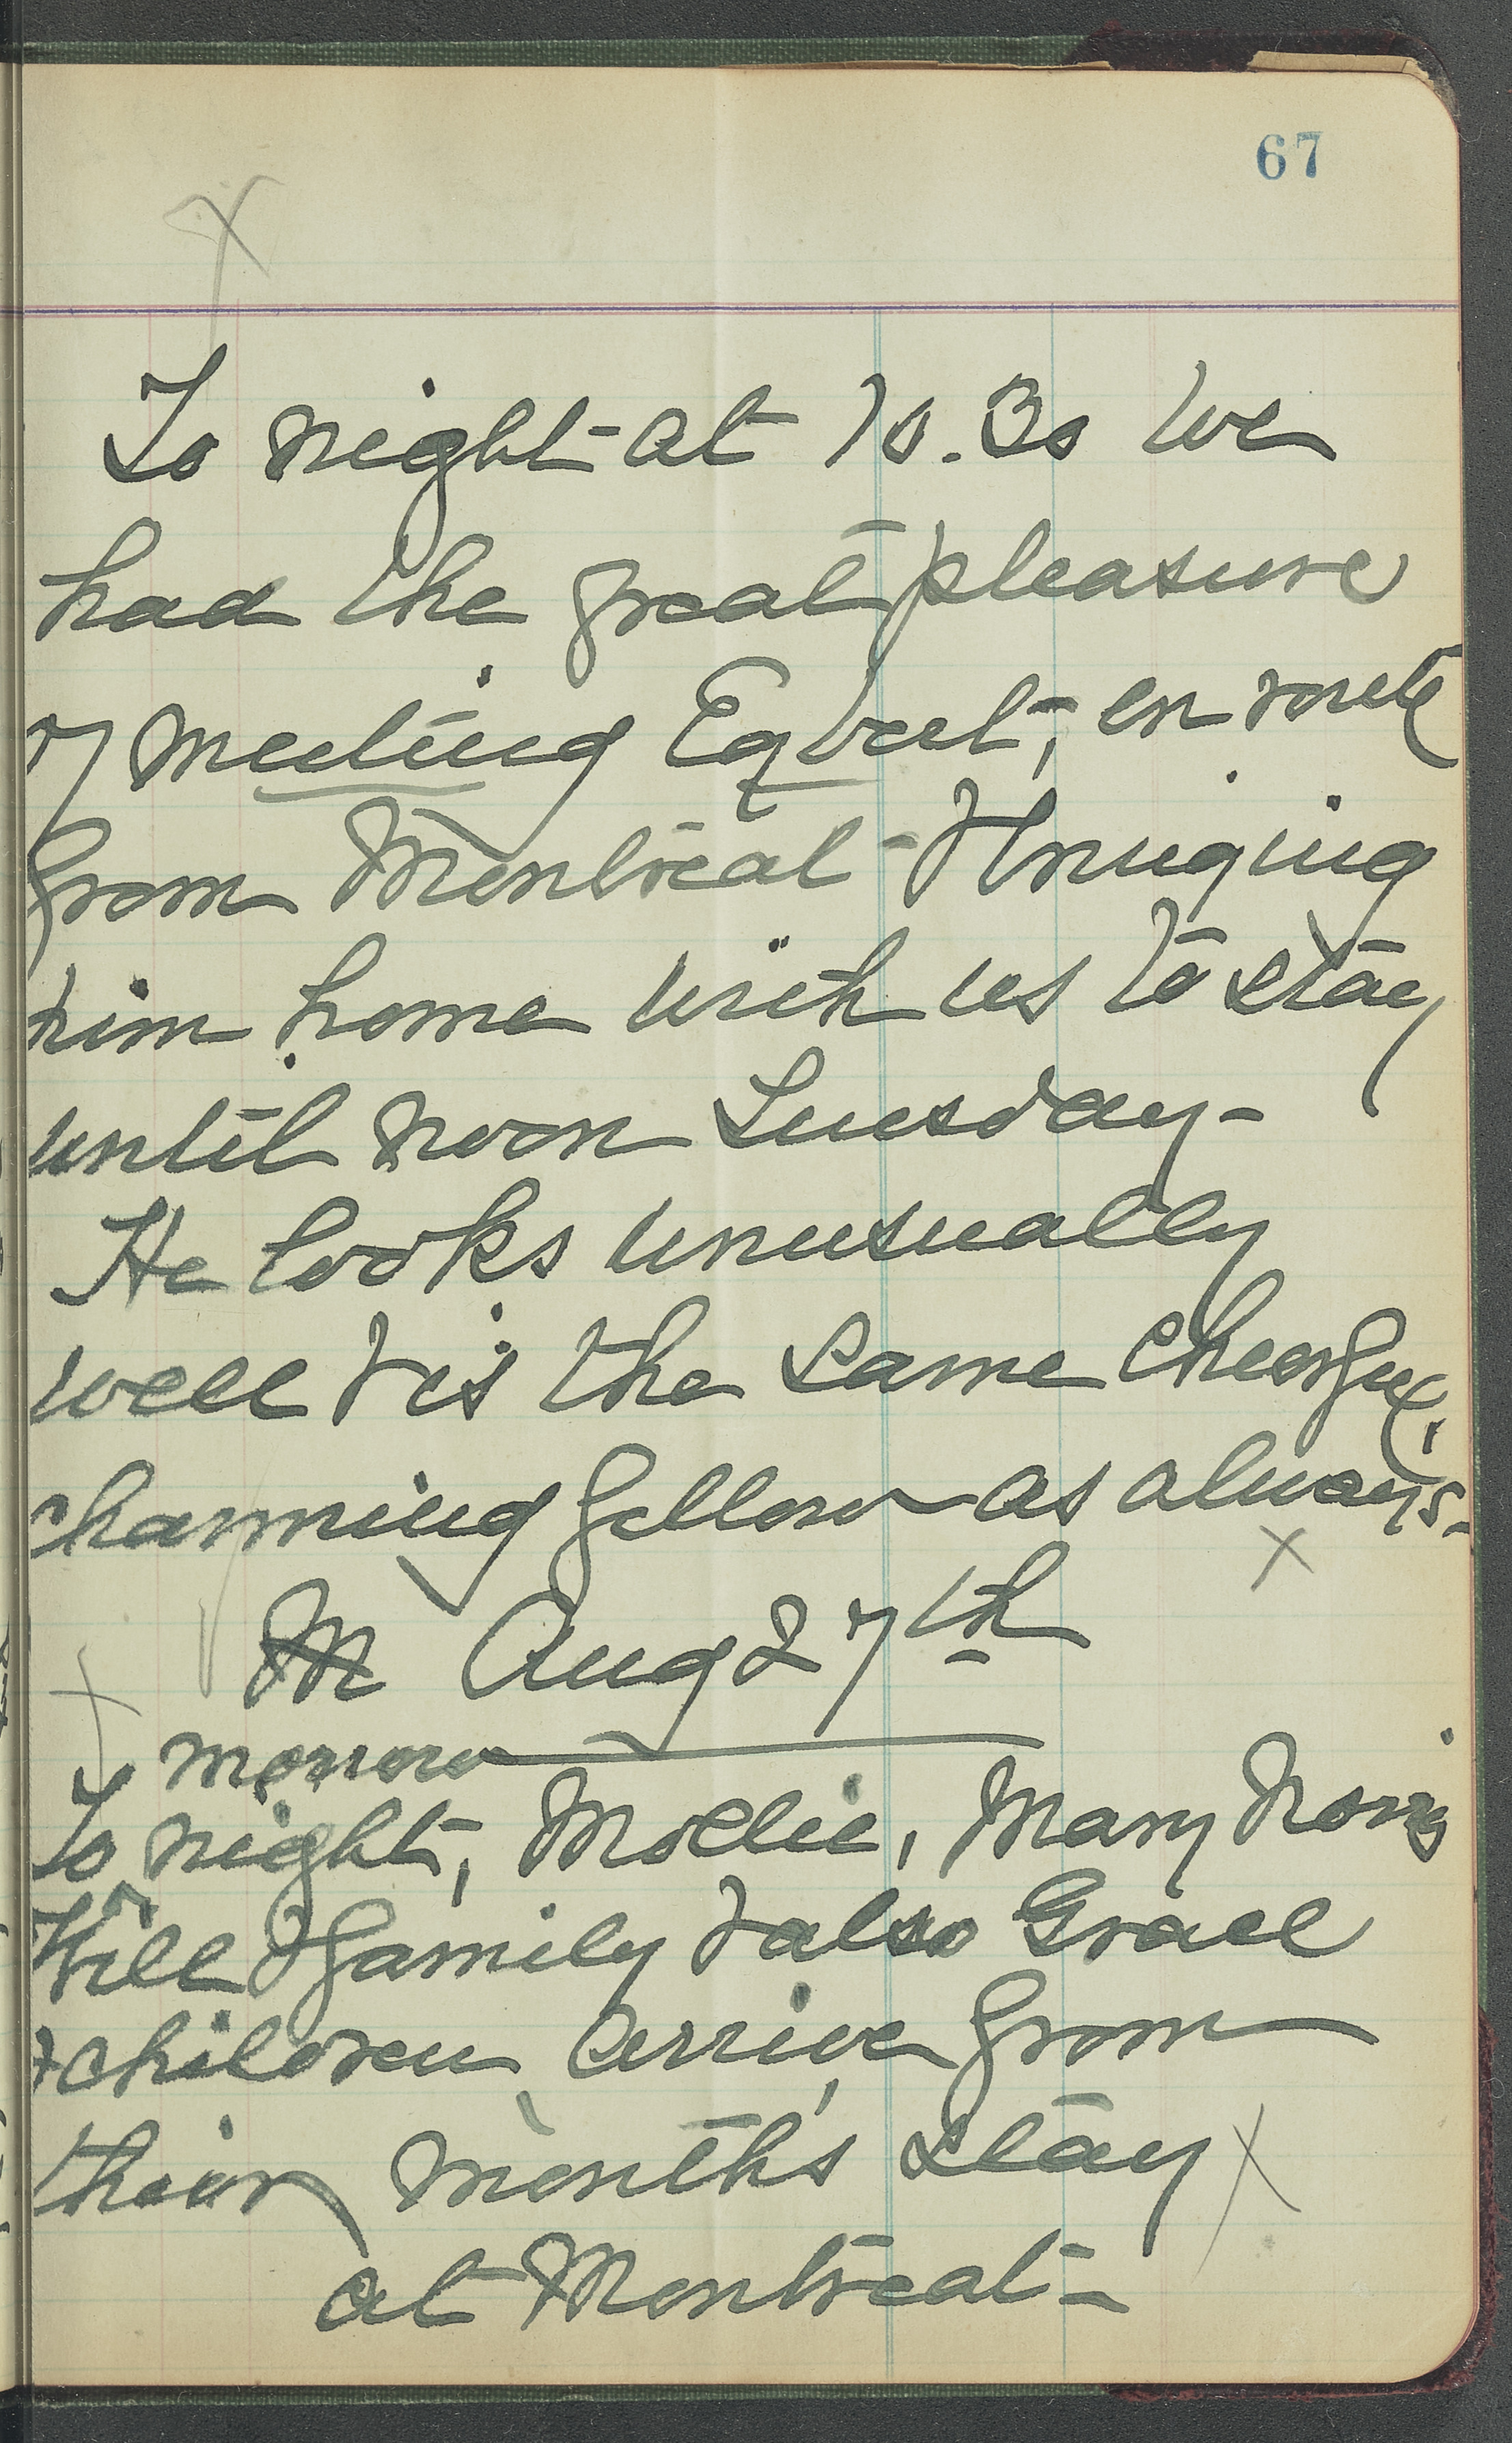 67
To night at 10.30 we
had the great pleasure
of meeting Egbert, en route
from Montreal - & bringing
him home with us to stay
until noon Tuesday -
He looks unusually
well & is the same cheerful,
charming fellow as always -
M Aug 27th
morrow
To night, Mollie, Mary Norris
Will & family & also Grace
& children, arrive from
their months stay
at Montreal -